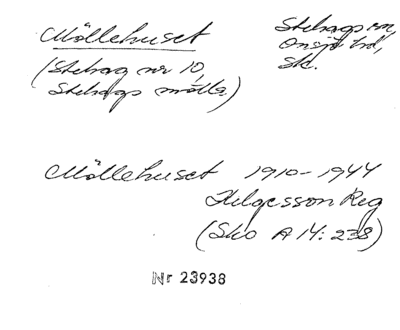 Möllehuset
(Stehag nr 10,
Stehags mölla)
Stehags sn,
Onsjö hd,
Sk.
Möllehuset 1910-1944
Helgesson Reg
(Sko A 14:238)
Nr 23938